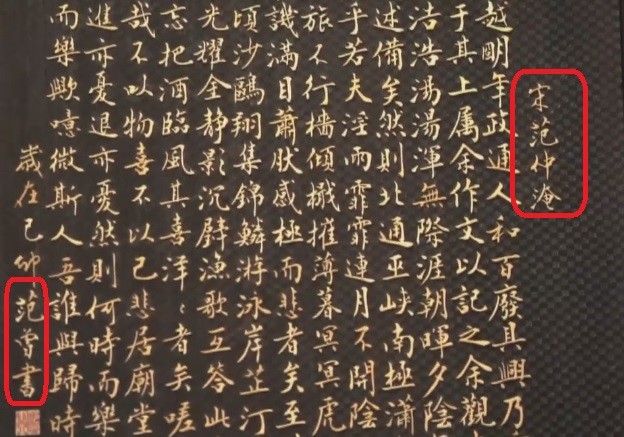 宋范仲淹
越明年政通人和百廢其興乃
于其上属余作文以記之余觀
浩浩湯湯渾無際涯朝暉夕陰
述備矣然則北通巫峽南極瀟
乎若夫淫雨霏霏連月不開陰
旅不行檣傾檝摧薄暮冥冥虎
譏滿目蕭肰感極而悲者矣至
頃沙鷗翔集錦鱗游泳岸芷汀
光耀全静影沉璧漁歌互答此
忘把酒臨風其喜洋〻者矣嗟
哉不以物喜不以己悲居廟堂
進亦憂退亦憂然則何時而樂
而樂歟噫微斯人吾誰與歸時
歲在己卯范曾書